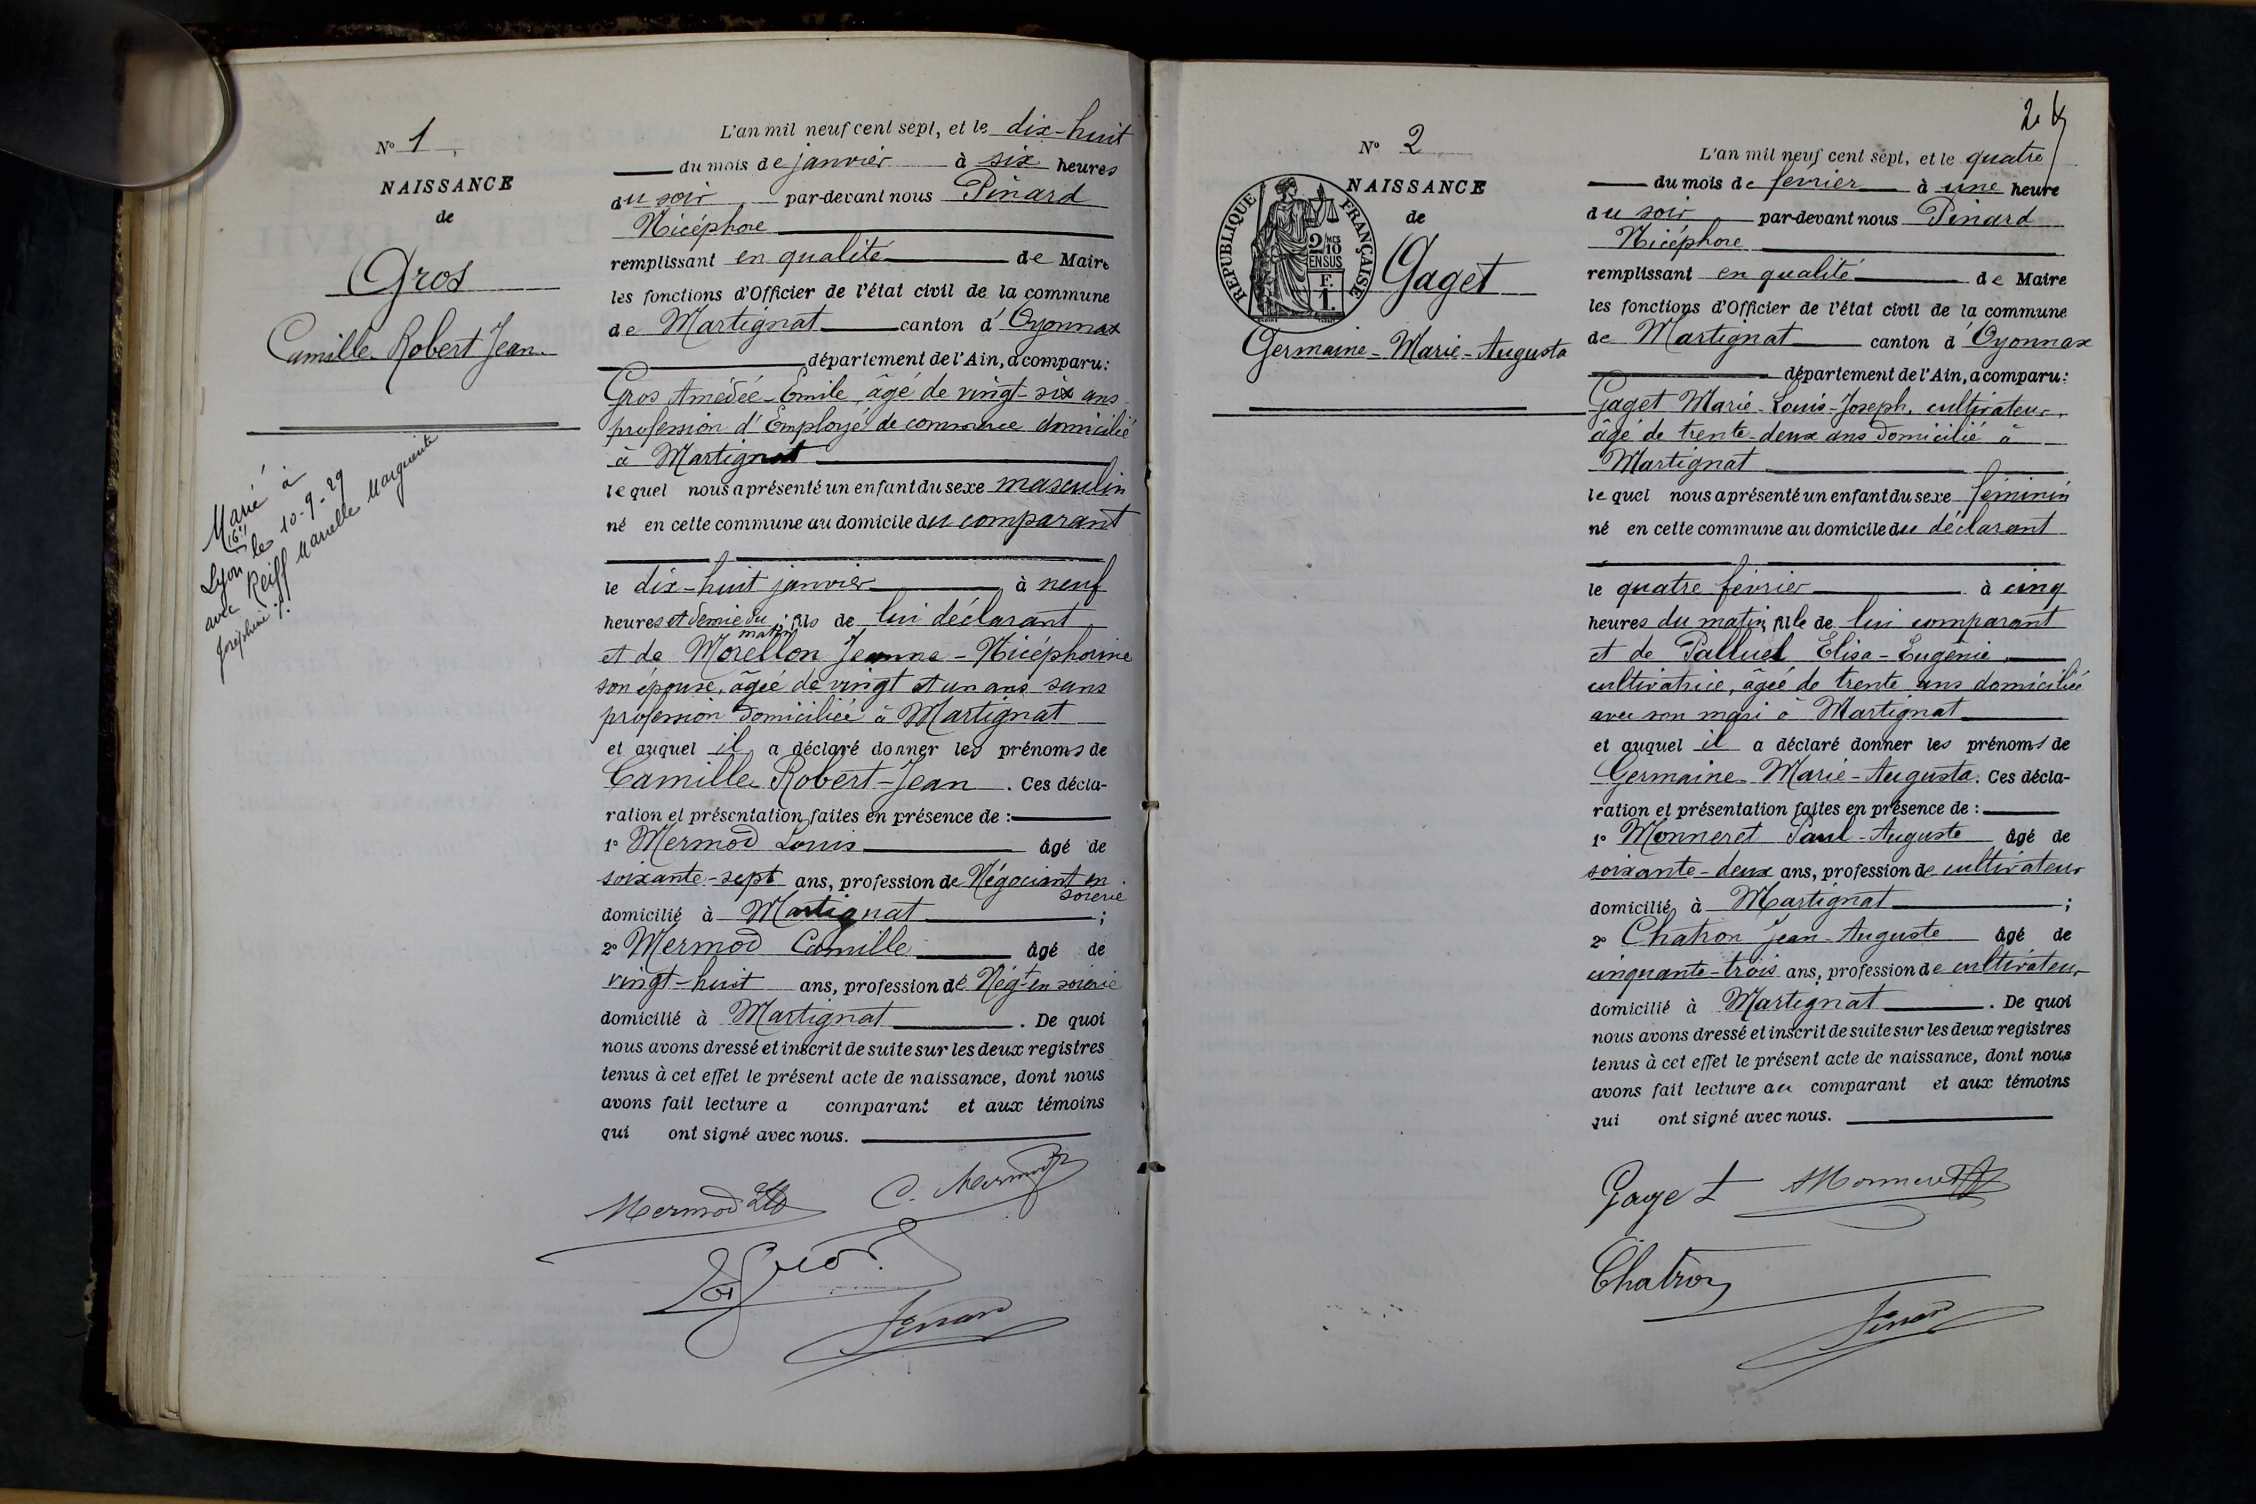 Nº 1
NAISSANCE
de
Gros
Camille Robert Jean
Marié à
Lyon 16ᵉ le 10-9-29
avec Reiff Marielle Marguerite
Joséphine ./.
L'an mil neuf cent sept, et le dix-huit
du mois de janvier à six heures
du soir par-devant nous Pinard
Nicéphore
remplissant en qualité de Maire
les fonctions d'Officier de l'état civil de la commune
de Martignat canton d'Oyonnax
département de l'Ain, a comparu:
Gros Amédée-Emile, âgé de vingt-six ans
profession d'Employé de commerce domicilié
à Martignat
lequel nous a présenté un enfant du sexe masculin
né en cette commune au domicile du comparant
le dix-huit janvier à neuf
heures et demie du matin, fils de lui déclarant
et de Morellon Jeanne-Nicéphorine
son épouse, âgée de vingt et un ans sans
profession domiciliée à Martignat
et auquel il a déclaré donner les prénoms de
Camille Robert-Jean. Ces décla-
ration et présentation faites en présence de :
1º Mermod Louis âgé de
soixante-sept ans, profession de Négociant en soierie
domicilié à Martignat ;
2º Mermod Camille âgé de
vingt-huit ans, profession de Négt en soierie
domicilié à Martignat. De quoi
nous avons dressé et inscrit de suite sur les deux registres
tenus à cet effet le présent acte de naissance, dont nous
avons fait lecture a comparant et aux témoins
qui ont signé avec nous.
Mermod C. Mermod
Gros
Pinard
24
Nº 2
NAISSANCE
de
RÉPUBLIQUE FRANÇAISE
2/10 MES
EN SUS
F.
1.
Gaget
Germaine-Marie-Augusta
L'an mil neuf cent sept, et le quatre
du mois de fevrier à une heure
du soir par-devant nous Pinard
Nicéphore
remplissant en qualité de Maire
les fonctions d'Officier de l'état civil de la commune
de Martignat canton d'Oyonnax
département de l'Ain, a comparu:
Gaget Marie-Louis-Joseph, cultivateur,
âgé de trente-deux ans domicilié à
Martignat
lequel nous a présenté un enfant du sexe féminin
né en cette commune au domicile du déclarant
le quatre février à cinq
heures du matin, fille de lui comparant
et de Palluel Elisa-Eugénie
cultivatrice, âgée de trente ans domiciliée
avec son mari à Martignat
et auquel il a déclaré donner les prénoms de
Germaine Marie-Augusta. Ces décla-
ration et présentation faites en présence de :
1º Monneret Paul-Auguste âgé de
soixante-deux ans, profession de cultivateur
domicilié à Martignat ;
2º Chatron Jean-Auguste âgé de
cinquante-trois ans, profession de cultivateur
domicilié à Martignat. De quoi
nous avons dressé et inscrit de suite sur les deux registres
tenus à cet effet le présent acte de naissance, dont nous
avons fait lecture au comparant et aux témoins
qui ont signé avec nous.
Gaget Monneret
Chatron
Pinard